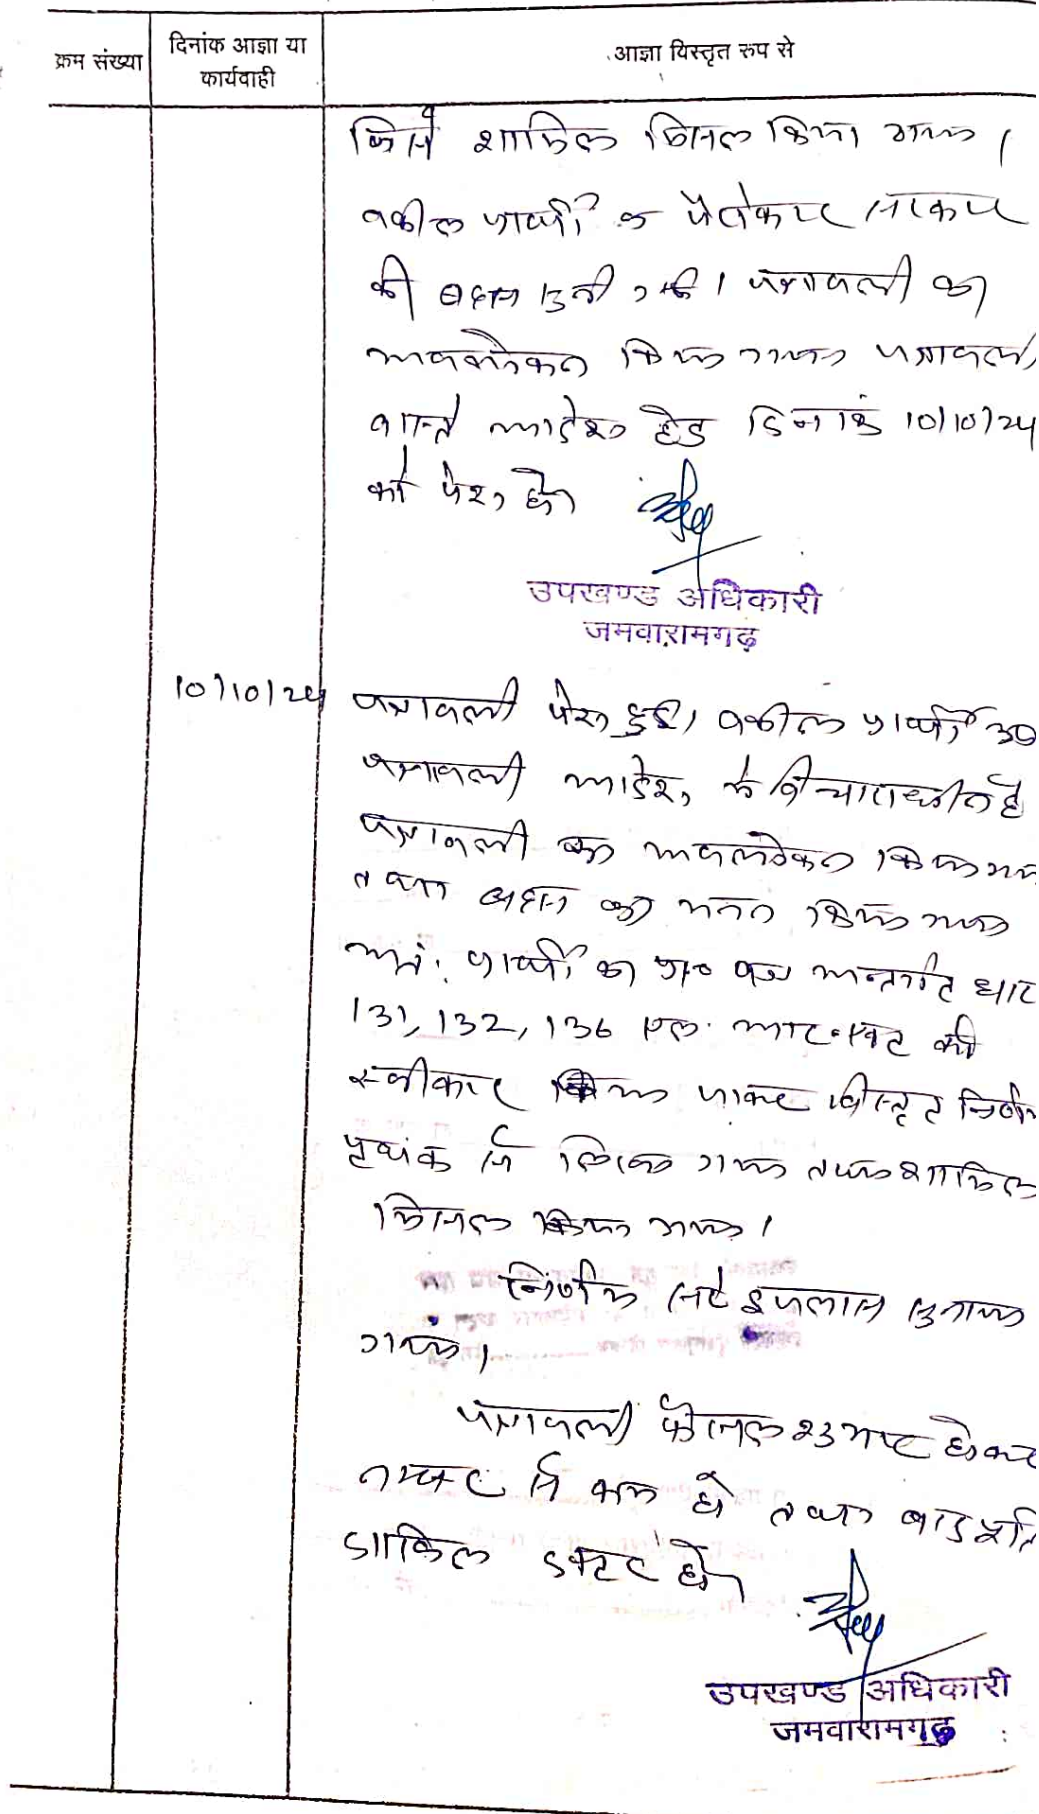 क्रम संख्या
दिनांक आज्ञा या
कार्यवाही
आज्ञा विस्तृत रूप से
जिसे शामिल मिसल किया गया।
वकील प्रार्थी व पैरोकार सरकार
की बहस सुनी गयी। पत्रावली का
अवलोकन किया गया पत्रावली
वास्ते आदेश हेतु दिनांक 10/10/24
को पेश हो
उपखण्ड अधिकारी
जमवारामगढ़
10/10/24
पत्रावली पेश हुई। वकील प्रार्थी उ०
पत्रावली आदेश के विचाराधीन है
पत्रावली का अवलोकन किया गया
तथा बहस का मनन किया गया
अतः प्रार्थी का प्रा० पत्र अन्तर्गत धारा
131, 132, 136 एल. आर. एक्ट को
स्वीकार किया जाकर विस्तृत निर्णय
पृथक से लिखा गया तथा शामिल
मिसल किया गया।
निर्णय सरे इजलास सुनाया
गया।
पत्रावली फैसल शुमार होकर
नम्बर से कम हो तथा बाद पूर्ति
दाखिल दफ्तर हो
उपखण्ड अधिकारी
जमवारामगढ़